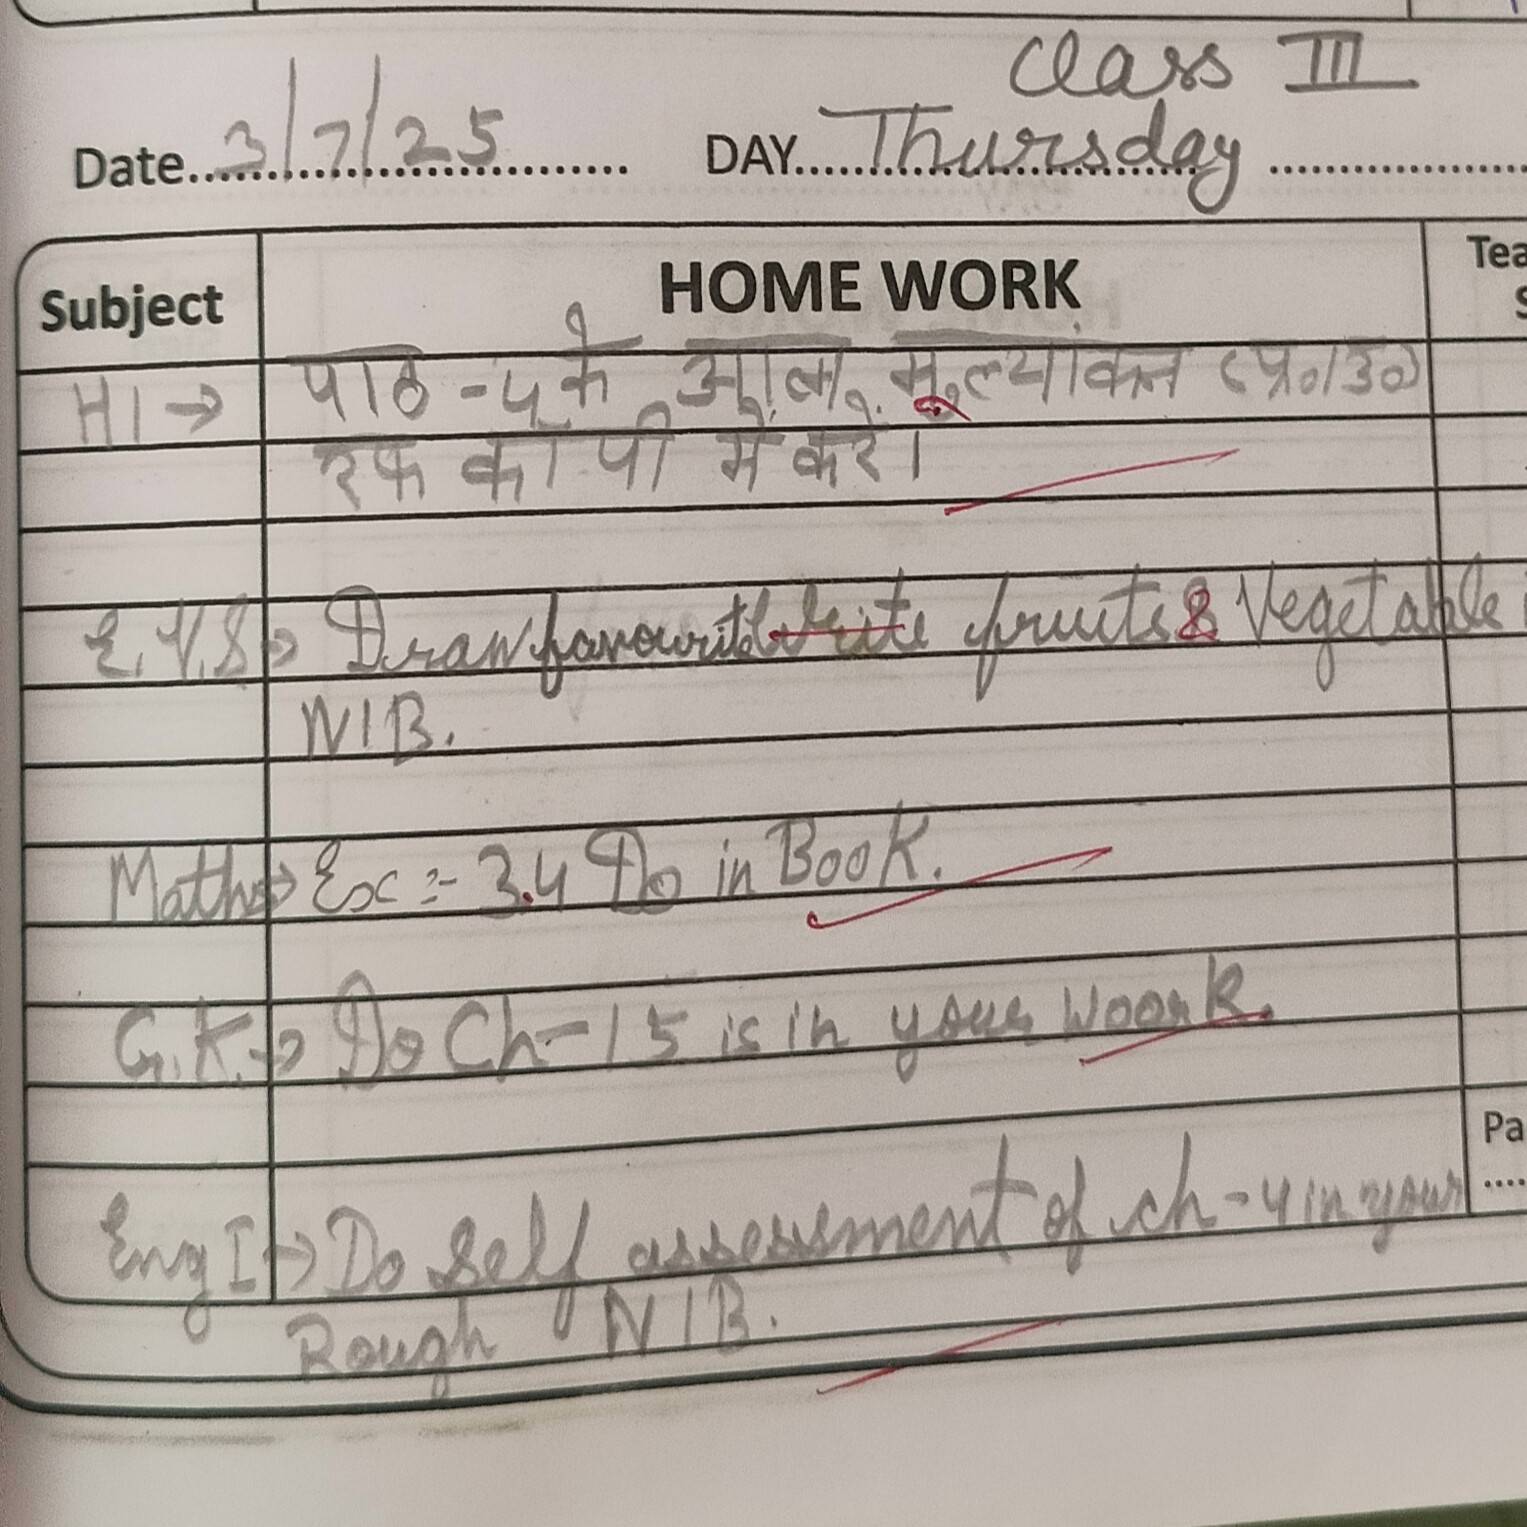 Class III
Date...3/7/25... DAY...Thursday...
Subject HOME WORK Tea
HI → पाठ - 5 के आत्म. मूल्यांकन (प्र०/उ०)
रफ कॉपी में करें।
E.V.S → Draw favourite fruits & Vegetable
N/B.
Maths → Ex :- 3.4 Do in Book.
G.K. → Do Ch-15 is in your woork.
Pa
Eng I → Do Self assessment of ch-4 in your
Rough N/B.